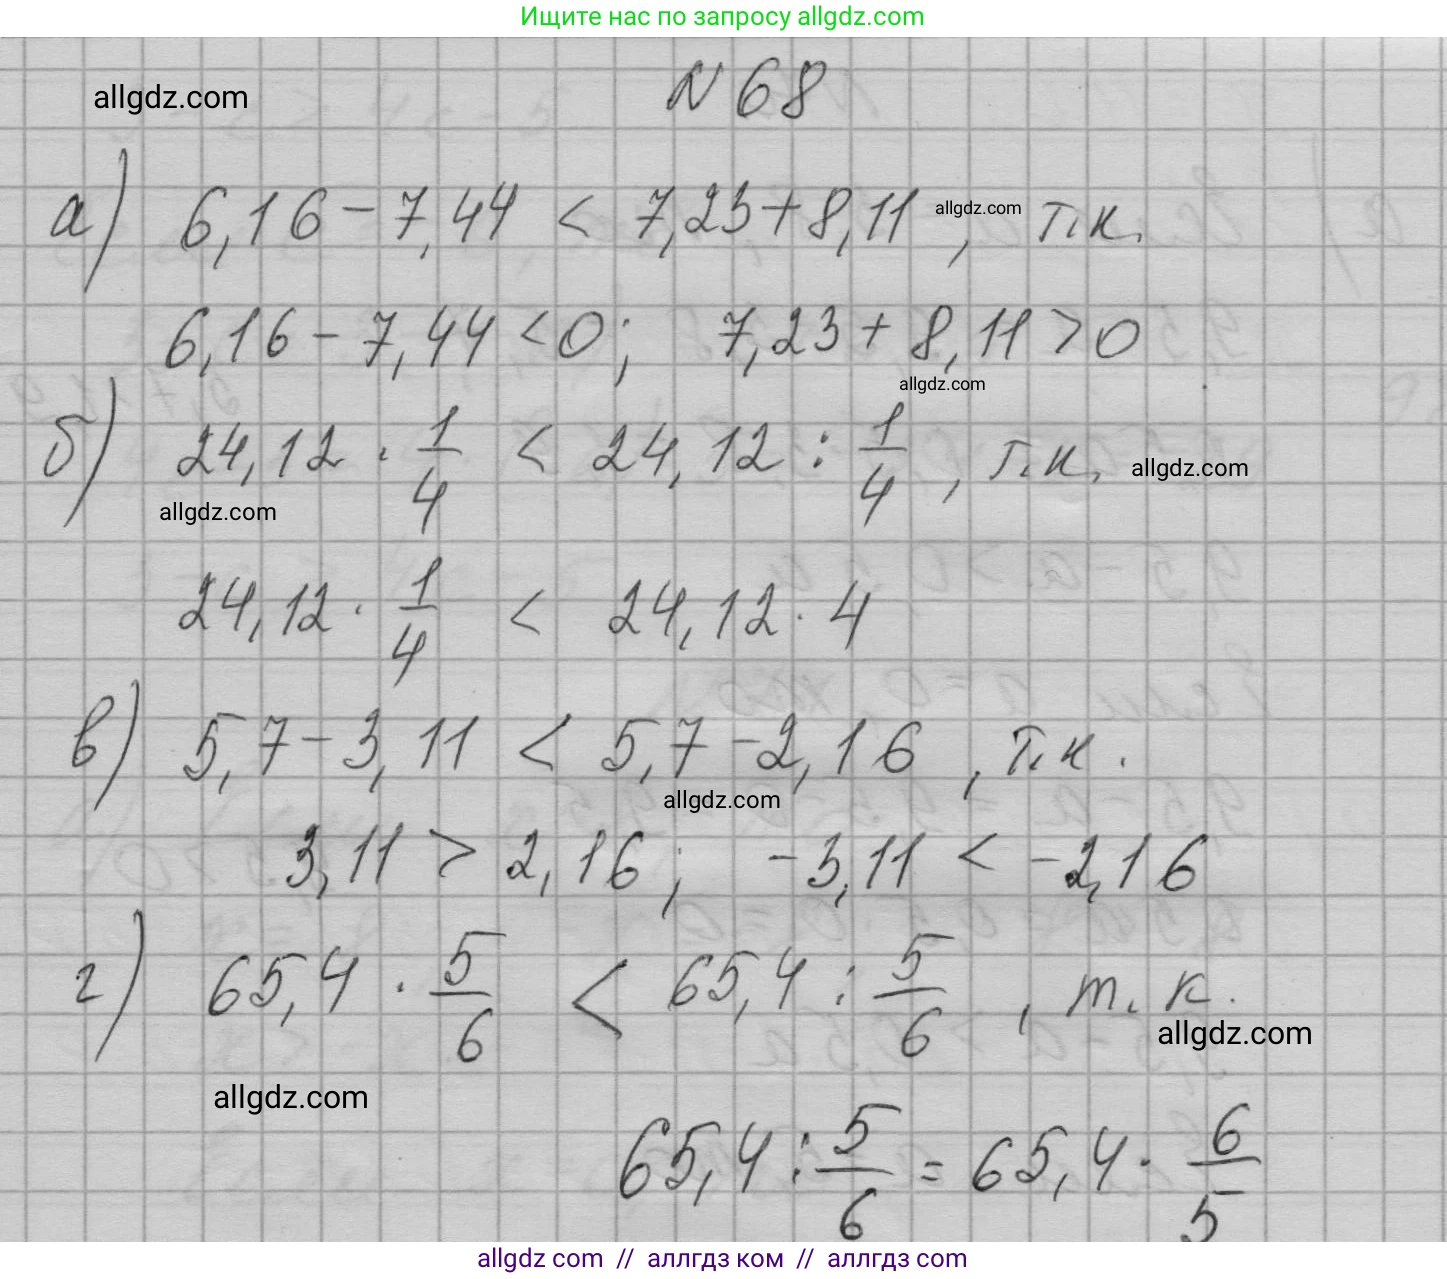 Ищите нас по запросу allgdz.com
allgdz.com
N 68
а) 6,16 - 7,44 < 7,23 + 8,11 allgdz.com , т.к.
6,16 - 7,44 < 0; 7,23 + 8,11 > 0
allgdz.com
б) 24,12 · 1/4 < 24,12 : 1/4 , т.к. allgdz.com
allgdz.com
24,12 · 1/4 < 24,12 · 4
в) 5,7 - 3,11 < 5,7 - 2,16 , т.к.
allgdz.com
3,11 > 2,16; -3,11 < -2,16
г) 65,4 · 5/6 < 65,4 : 5/6 , т.к.
allgdz.com
allgdz.com
65,4 : 5/6 = 65,4 · 6/5
allgdz.com // аллгдз ком // аллгдз.com